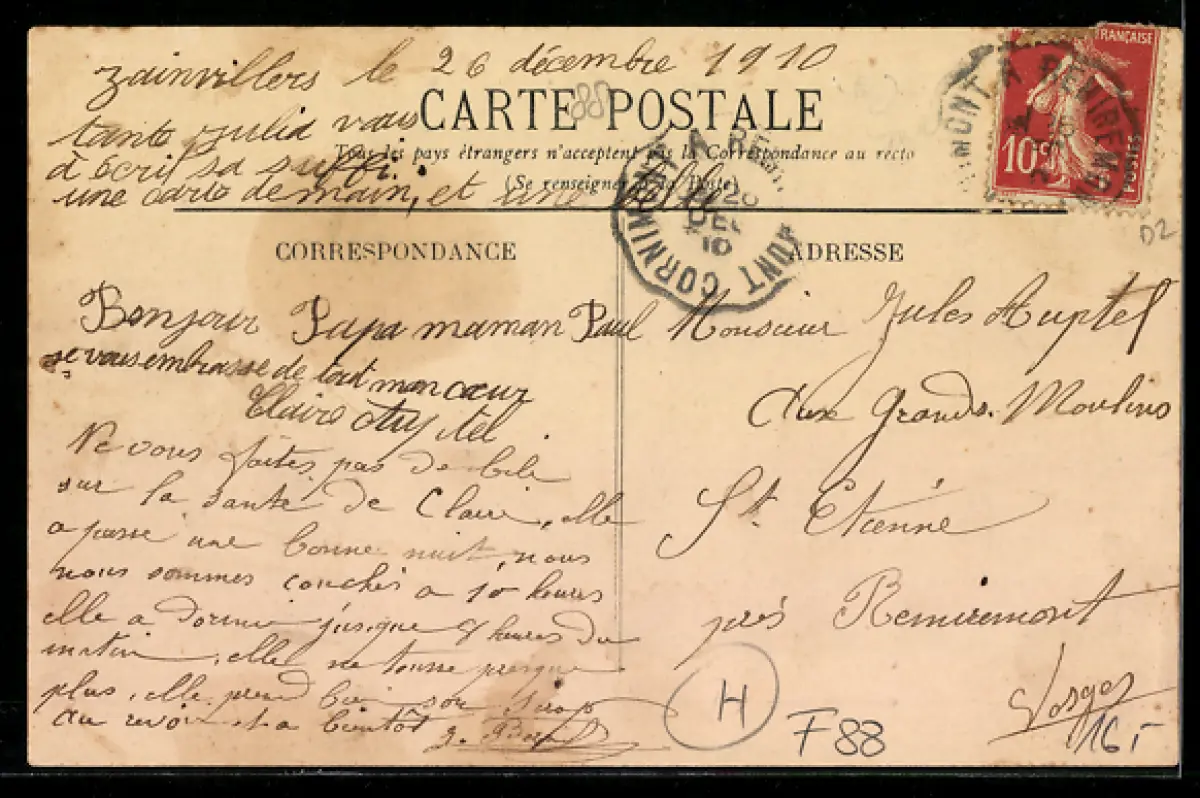 Zainvillers le 26 décembre 1910
CARTE POSTALE
tante Julia vous
Tous les pays étrangers n'acceptent pas la Correspondance au recto
à écrit sa suffi.
(Se renseigner à la Poste)
une carte demain, et une belle
FRANÇAISE
10c
POSTES
CORNIMONT A REMIREMONT
26
DEC
10
D2
CORRESPONDANCE
Bonjour Papa maman Paul
je vous embrasse de tout mon cœur
Claire Auptel
Ne vous faites pas de bile
sur la santé de Claire, elle
a passé une bonne nuit, nous
nous sommes couchés a 10 heures
elle a dormi jusque 9 heures du
matin, elle ne tousse presque
plus, elle prend bien son sirop
au revoir et a bientôt
ADRESSE
Monsieur Jules Auptel
Aux Grands Moulins
St. Etienne
près Remiremont
Vosges
H
F88
16,-